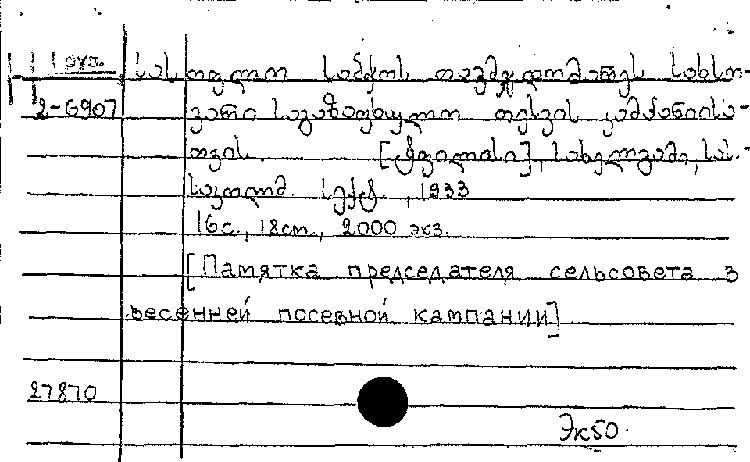 Груз.
2-6907
სასოფლო საბჭოს თავმჯდომარეს სახსო-
ვარი საგაზაფხულო თესვის კამპანიისა-
თვის. [ტფილისი], სახელგამი, სას.-
საკოლმ. სექტ., 1933
16с., 18см., 2000 экз.
[Памятка председателя сельсовета в
весенней посевной кампании]
27870
Эк50